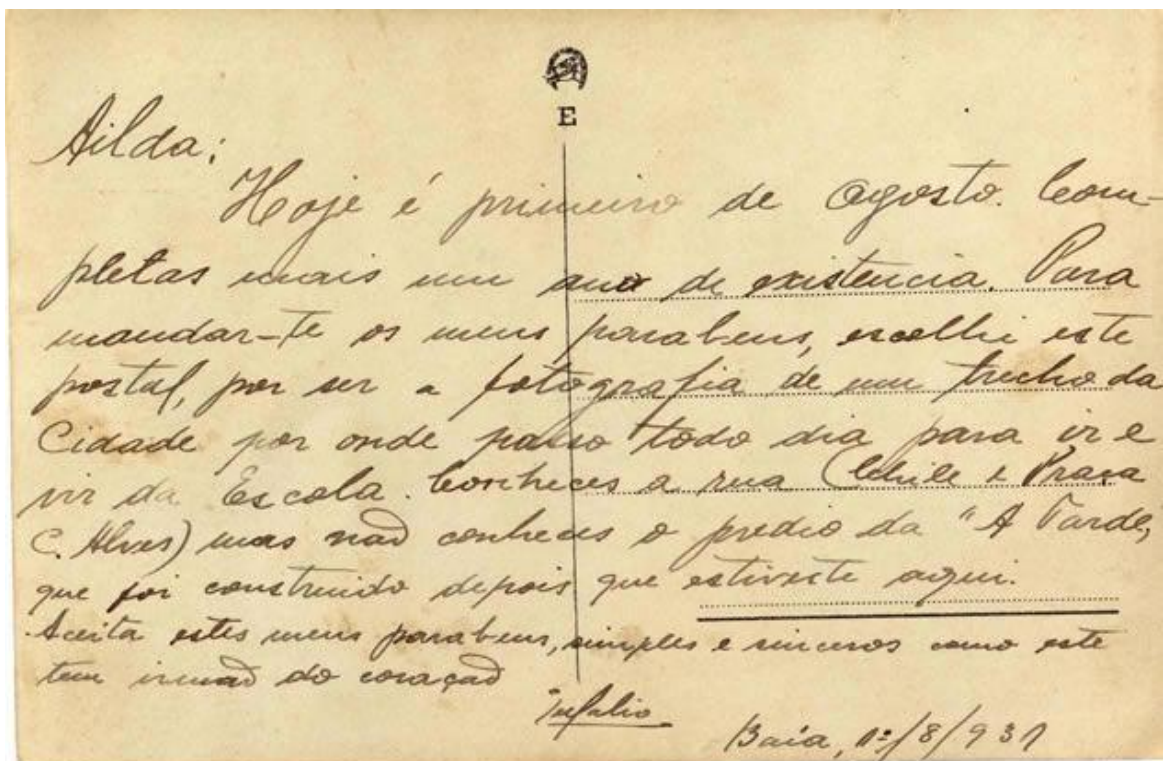 E
Ailda:
Hoje é primeiro de Agosto. Com-
pletas mais um ano de existencia. Para
mandar-te os meus parabens, escolhi este
postal, por ser a fotografia de um trecho da
Cidade por onde passo todo dia para ir e
vir da Escola. Conheces a rua (Chile e Praça
C. Alves) mas naõ conheces o predio da "A Tarde,
que foi construido depois que estiveste aqui.
Aceita estes meus parabens, simples e sinceros como este
teu irmaõ do coraçaõ
Baía, 1º/8/931